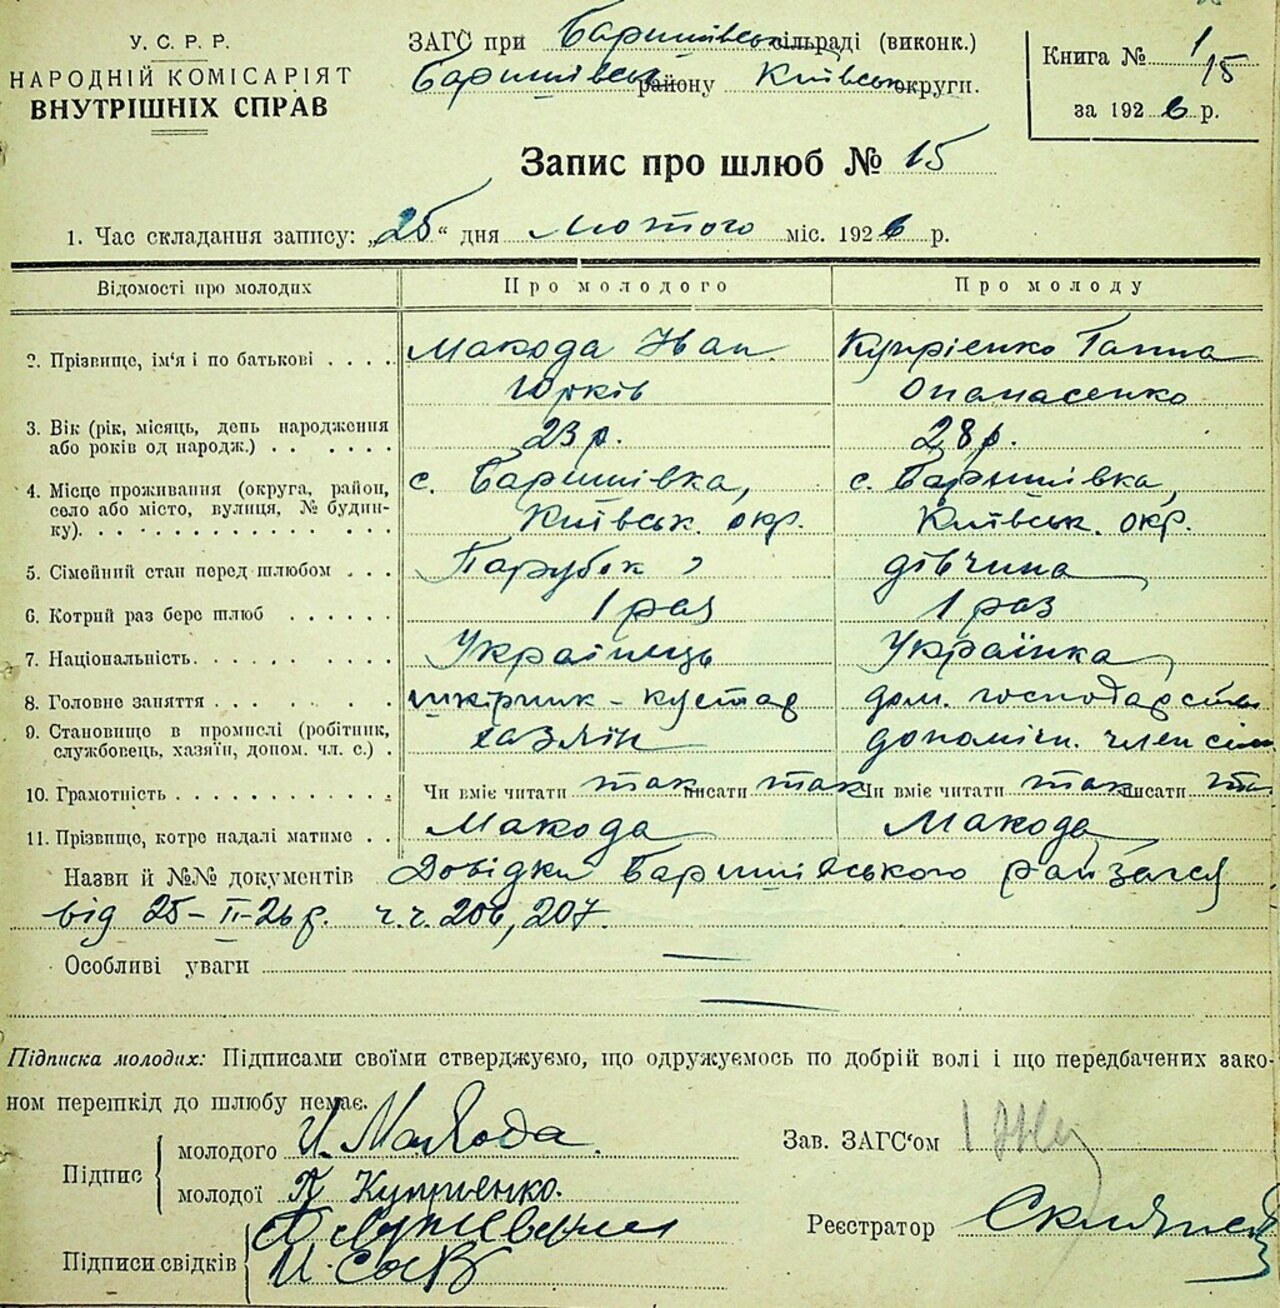 У. С. Р. Р.
НАРОДНІЙ КОМІСАРІЯТ
ВНУТРІШНІХ СПРАВ
ЗАГС при Баришівськ сільраді (виконк.)
Баришівськ району Київськ округи.
Книга № 1/15
за 1926 р.
Запис про шлюб № 15
1. Час складання запису: „25“ дня Лютого міс. 1926 р.
Відомості про молодих Про молодого Про молоду
2. Прізвище, ім‘я і по батькові . . . . Макода Іван Купрієнко Ганна
Юрків Опанасенко
3. Вік (рік, місяць, день народження
або років од народж.) . . . . . . 23 р. 28 р.
4. Місце проживання (округа, район, с. Баришівка, с. Баришівка,
село або місто, вулиця, № будин-
ку). . . . . . . . . . . . . Київськ. окр. Київськ. окр.
5. Сімейний стан перед шлюбом . . . Парубок дівчина
6. Котрий раз бере шлюб . . . . . . 1 раз 1 раз
7. Національність. . . . . . . . . Українець Українка
8. Головне заняття . . . . . . . . шкірник - кустар дом. господарство
9. Становище в промислі (робітник,
службовець, хазяїн, допом. чл. с.) . хазяїн допоміжн. член сім
10. Грамотність . . . . . . . . . . . Чи вміє читати так писати так Чи вміє читати так писати так
11. Прізвище, котре надалі матиме . . Макода Макода
Назви й №№ документів Довідки Баришівського райзагса
від 25-II-26 р. ч.ч. 206, 207.
Особливі уваги —
—
Підписка молодих: Підписами своїми стверджуємо, що одружуємось по добрій волі і що передбачених зако-
ном перешкід до шлюбу немає.
Підпис
молодого И. Макода
молодої Купрієнко.
Підписи свідків
Зав. ЗАГС‘ом
Реєстратор